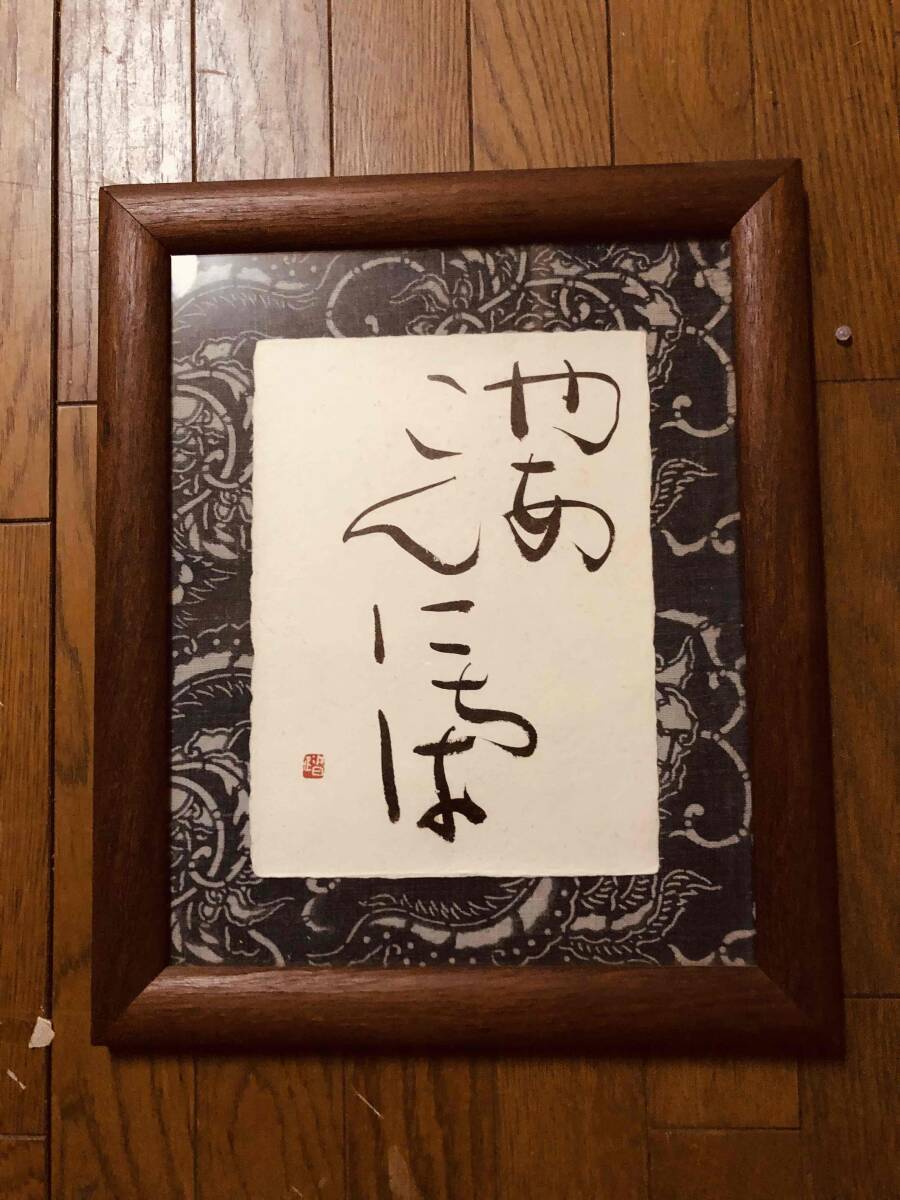 やあ
こんにちは